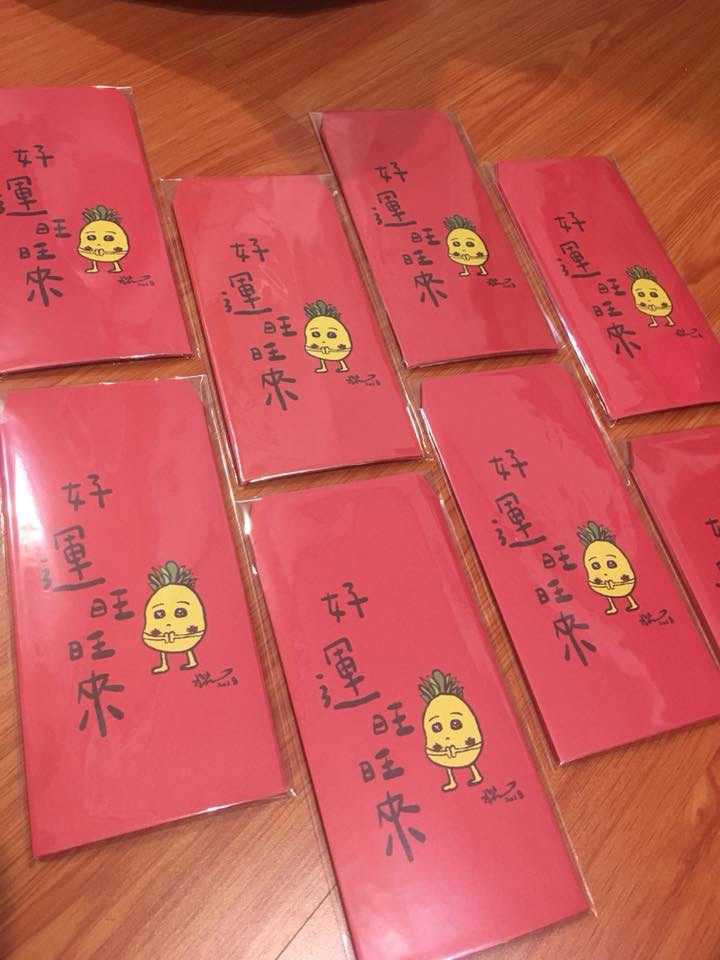 好運旺旺來
好運旺旺來
好運旺旺來
好運旺旺來
好運旺旺來
好運旺旺來
好運旺旺來